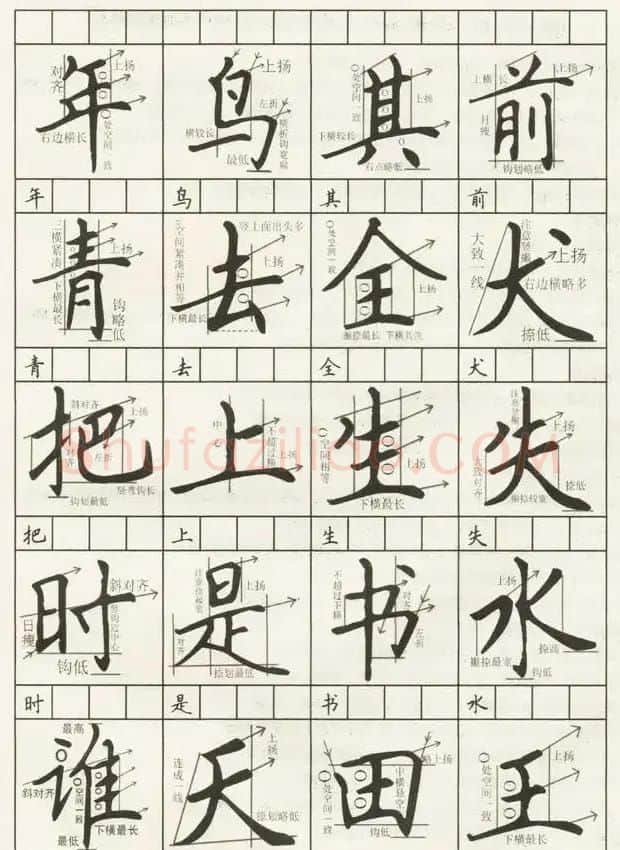 年 鸟 其 前
对齐 上扬 处空间一致 右边横长
上扬 左折 横较长 最低 横折钩宽扁
处空间一致 上扬 下横较长 右点略低
上横长 月瘦 钩划略低
年 鸟 其 前
青 去 全 犬
三横紧凑下横最长 上扬 钩略低
空间紧凑并相等 竖上面出头多 上扬 下横最长
处空间一致 上扬 撇捺最长 下横其次
大致一线 上扬 右边横略多 捺低
青 去 全 犬
把 上 生 失
斜对齐 上扬 对齐 左折 竖弯钩长 钩划最低
中心 不超过横 上扬
空间相等 上扬 下横最长
上扬 大致对齐 捺低 撇捺较宽
shufaziliao.COM
把 上 生 失
时 是 书 水
日瘦 斜对齐 钩低
上扬 对齐 捺划最低
不超过下横 对齐 左折
上扬 捺高 撇捺最宽 钩低
时 是 书 水
谁 天 田 王
最高 上扬 斜对齐 空间一致 最低 下横最长
连成一线 上扬 捺划略低
处空间一致 略上扬 中横悬空 钩低
处空间一致 上扬 下横最长